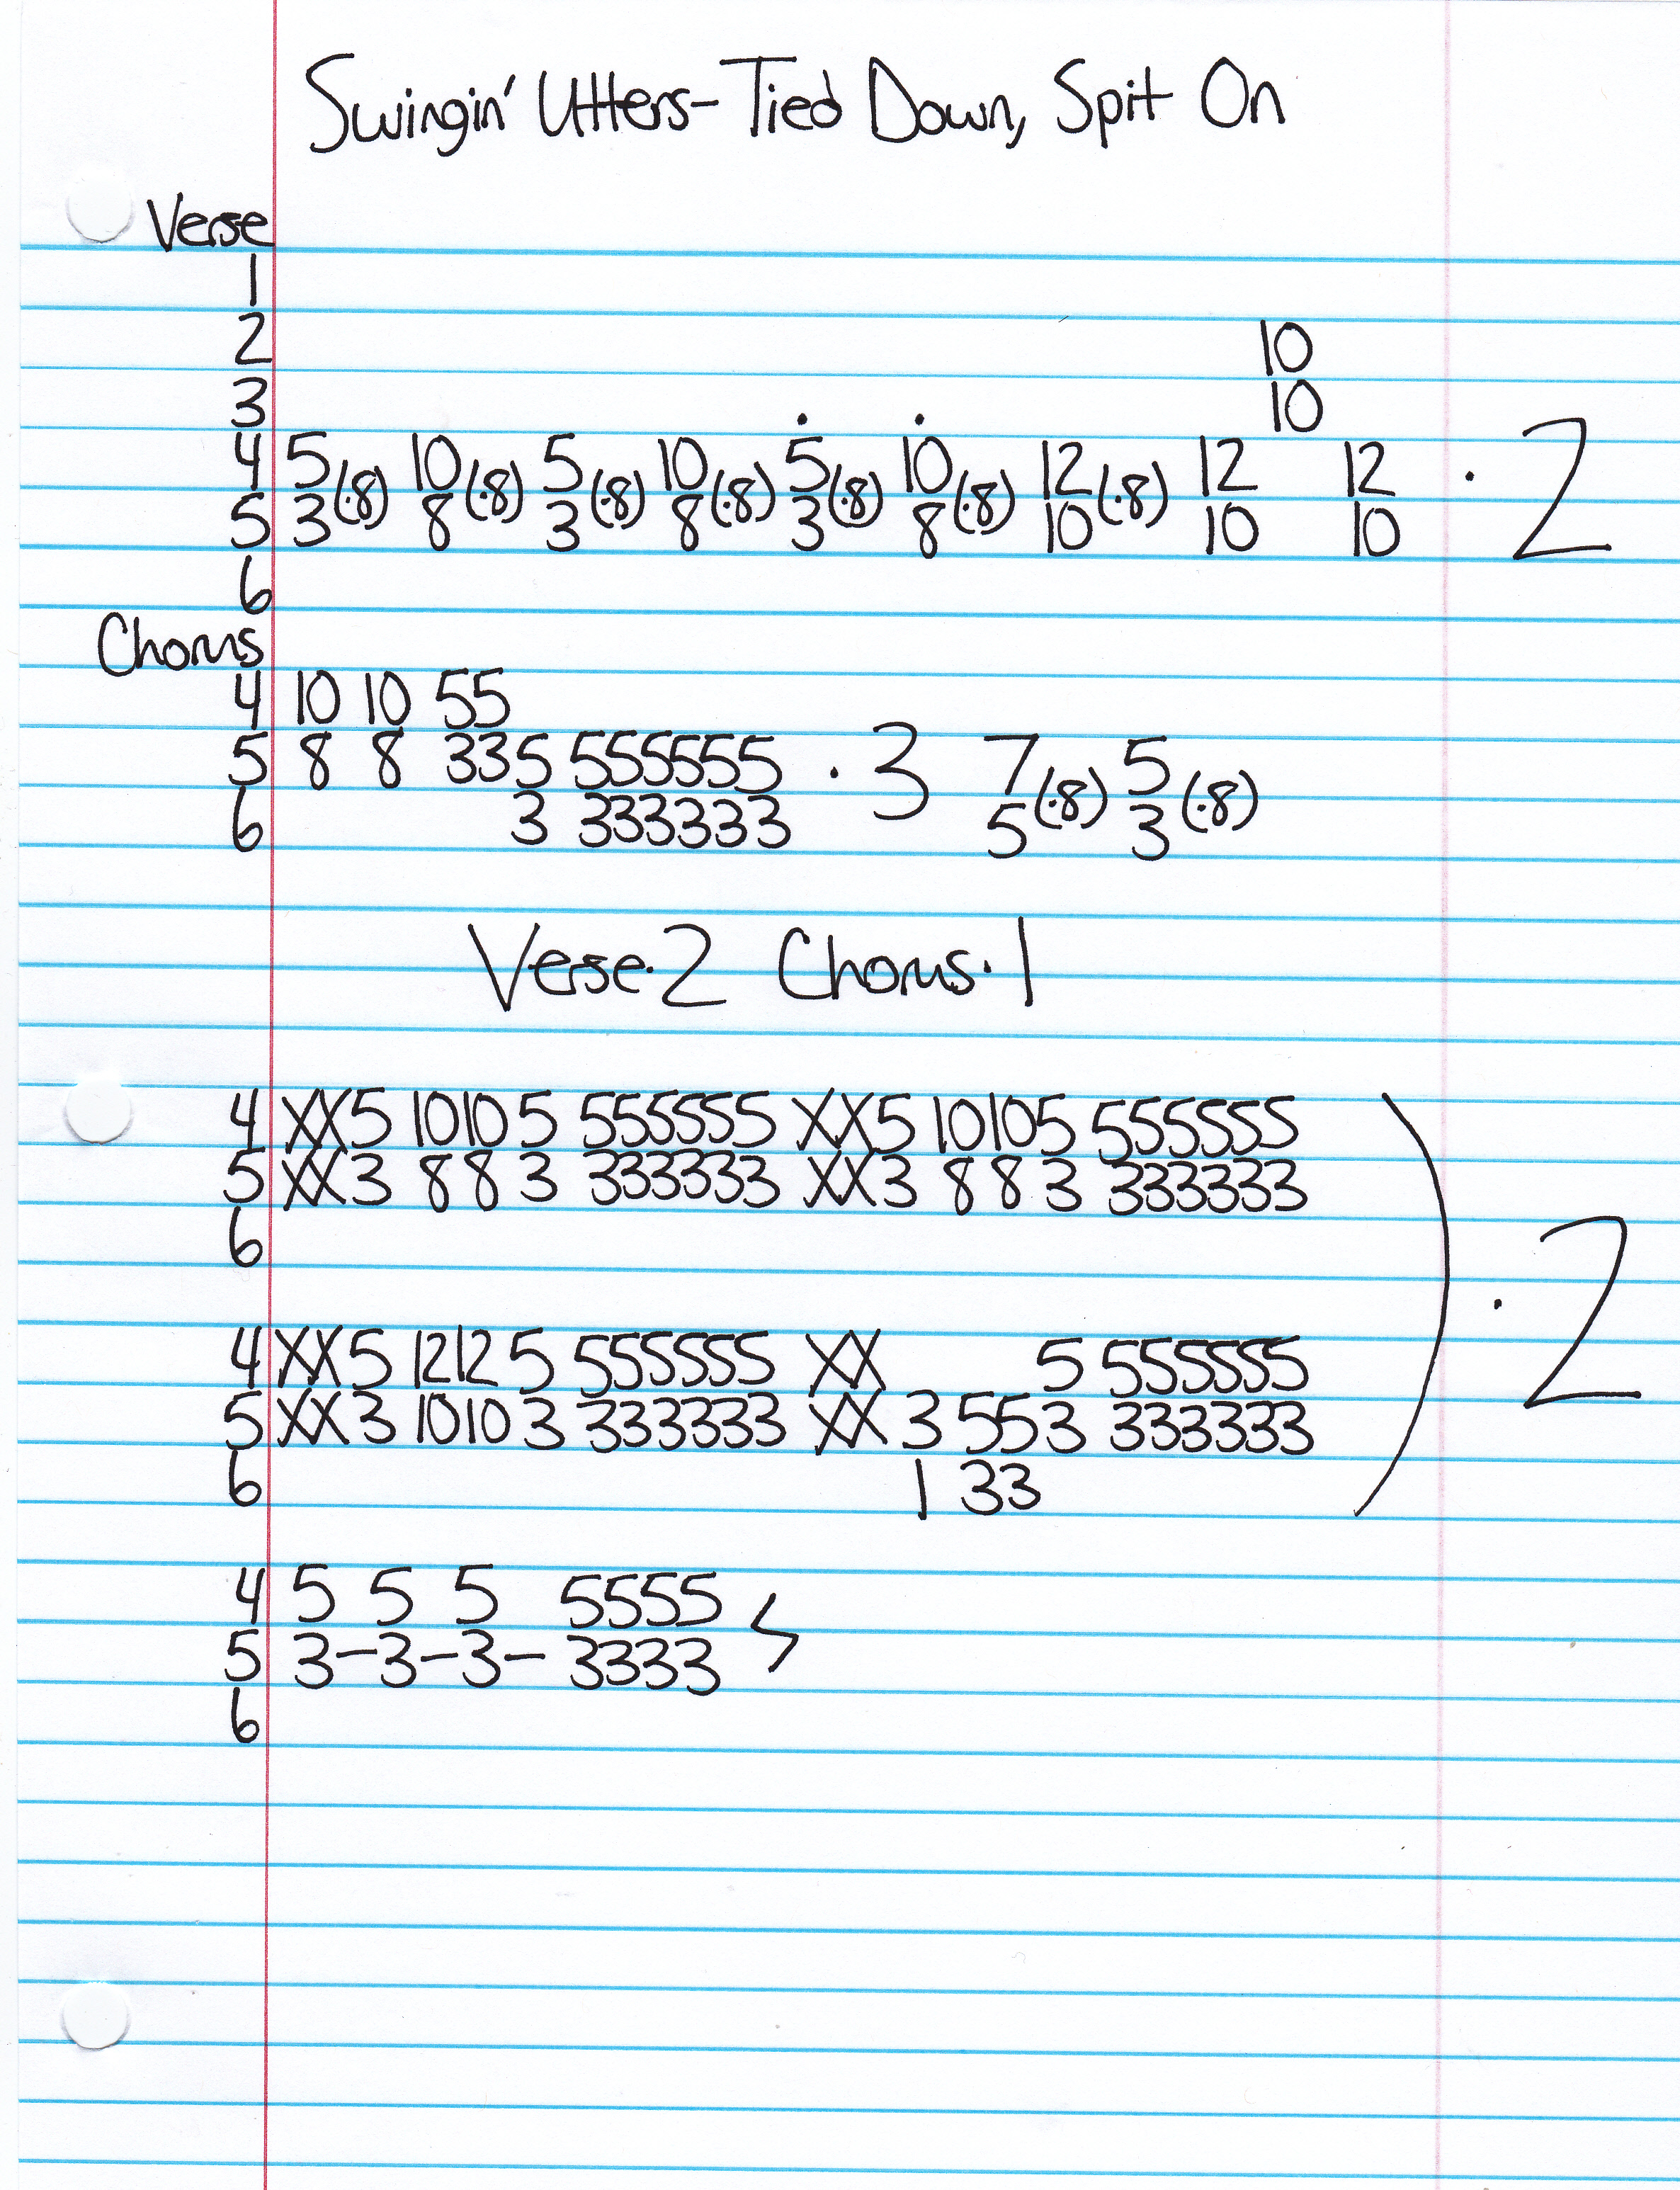 Swingin' Utters- Tied Down, Spit On
Verse
1
2 10
3 10
4 5 (·8) 10 (·8) 5 (·8) 10 (·8) 5 (·8) 10 (·8) 12 (·8) 12 12 · 2
5 3 8 3 8 3 8 10 10 10
6
Chorus
4 10 10 55
5 8 8 335 555555 · 3 7 (·8) 5 (·8)
6 3 333333 5 3
Verse·2 Chorus·1
4 XX5 1010 5 555555 XX5 10105 555555
5 XX3 88 3 333333 XX3 88 3 333333
6
· 2
4 XX5 1212 5 555555 XX 5 555555
5 XX3 1010 3 333333 XX 3 553 333333
6 1 33
4 5 5 5 5555
5 3-3-3- 3333
6